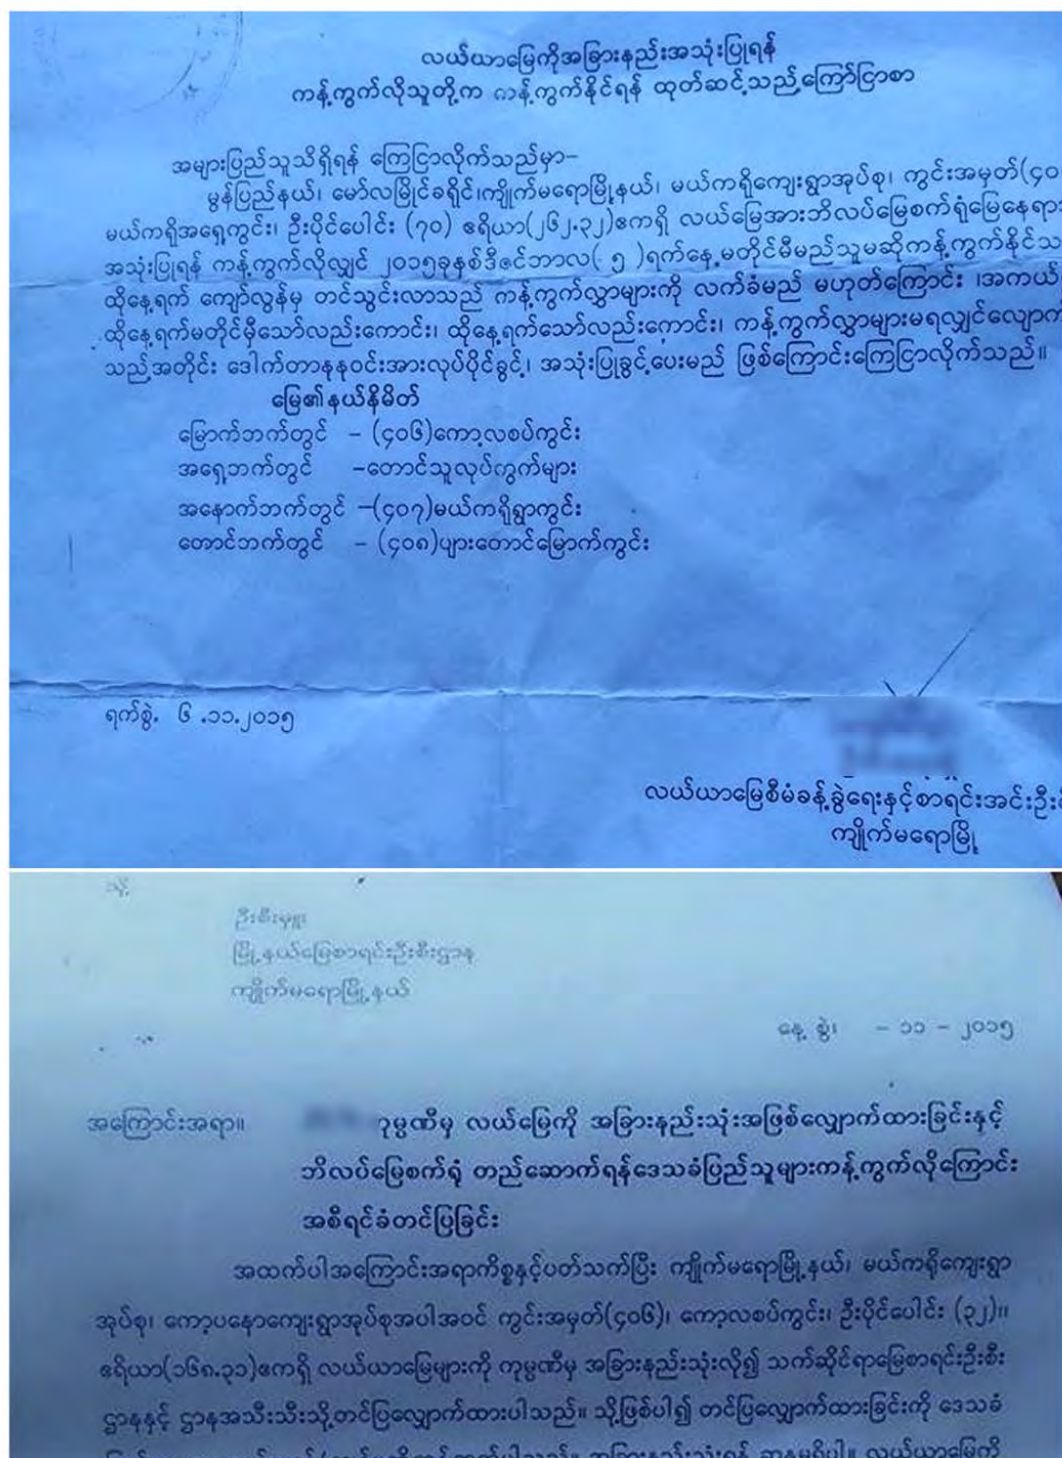 လယ်ယာမြေကိုအခြားနည်းအသုံးပြုရန်
ကန့်ကွက်လိုသူတို့က ကန့်ကွက်နိုင်ရန် ထုတ်ဆင့်သည့်ကြော်ငြာစာ
အများပြည်သူသိရှိရန် ကြေငြာလိုက်သည်မှာ-
မွန်ပြည်နယ်၊ မော်လမြိုင်ခရိုင်၊ကျိုက်မရောမြို့နယ်၊ မယ်ကရိုကျေးရွာအုပ်စု၊ ကွင်းအမှတ်(၄၀
မယ်ကရိုအရှေ့ကွင်း၊ ဦးပိုင်ပေါင်း (၇၀) ဧရိယာ(၂၆၂.၃၂)ဧကရှိ လယ်မြေအားဘိလပ်မြေစက်ရုံမြေနေရာ
အသုံးပြုရန် ကန့်ကွက်လိုလျှင် ၂၀၁၅ခုနှစ်ဒီဇင်ဘာလ( ၅ )ရက်နေ့မတိုင်မီမည်သူမဆိုကန့်ကွက်နိုင်သ
ထိုနေ့ရက် ကျော်လွန်မှ တင်သွင်းလာသည် ကန့်ကွက်လွှာများကို လက်ခံမည် မဟုတ်ကြောင်း ၊အကယ်
ထိုနေ့ရက်မတိုင်မှီသော်လည်းကောင်း၊ ထိုနေ့ရက်သော်လည်းကောင်း၊ ကန့်ကွက်လွှာများမရလျှင်လျောက်
သည့်အတိုင်း ဒေါက်တာနုနုဝင်းအားလုပ်ပိုင်ခွင့်၊ အသုံးပြုခွင့်ပေးမည် ဖြစ်ကြောင်းကြေငြာလိုက်သည်။
မြေ၏နယ်နိမိတ်
မြောက်ဘက်တွင် - (၄၀၆)ကော့လစပ်ကွင်း
အရှေ့ဘက်တွင် -တောင်သူလုပ်ကွက်များ
အနောက်ဘက်တွင် -(၄၀၇)မယ်ကရိုရွာကွင်း
တောင်ဘက်တွင် - (၄၀၈)ပျားတောင်မြောက်ကွင်း
ရက်စွဲ. ၆ .၁၁.၂၀၁၅
လယ်ယာမြေစီမံခန့်ခွဲရေးနှင့်စာရင်းအင်းဦး
ကျိုက်မရောမြို့
သို့
ဦးစီးမှူး
မြို့နယ်မြေစာရင်းဦးစီးဌာန
ကျိုက်မရောမြို့နယ်
နေ့ စွဲ၊ - ၁၁ - ၂၀၁၅
အကြောင်းအရာ။ ကုမ္ပဏီမှ လယ်မြေကို အခြားနည်းသုံးအဖြစ်လျှောက်ထားခြင်းနှင့်
ဘိလပ်မြေစက်ရုံ တည်ဆောက်ရန်ဒေသခံပြည်သူများကန့်ကွက်လိုကြောင်း
အစီရင်ခံတင်ပြခြင်း
အထက်ပါအကြောင်းအရာကိစ္စနှင့်ပတ်သက်ပြီး ကျိုက်မရောမြို့နယ်၊ မယ်ကရိုကျေးရွာ
အုပ်စု၊ ကော့ပနောကျေးရွာအုပ်စုအပါအဝင် ကွင်းအမှတ်(၄၀၆)၊ ကော့လစပ်ကွင်း၊ ဦးပိုင်ပေါင်း (၃၂)။
ဧရိယာ(၁၆၈.၃၁)ဧကရှိ လယ်ယာမြေများကို ကုမ္ပဏီမှ အခြားနည်းသုံးလို၍ သက်ဆိုင်ရာမြေစာရင်းဦးစီး
ဌာနနှင့် ဌာနအသီးသီးသို့တင်ပြလျှောက်ထားပါသည်။ သို့ဖြစ်ပါ၍ တင်ပြလျှောက်ထားခြင်းကို ဒေသခံ
အခြားနည်းသုံးရန် ဆန္ဒမရှိပါ။ လယ်ယာမြေကို